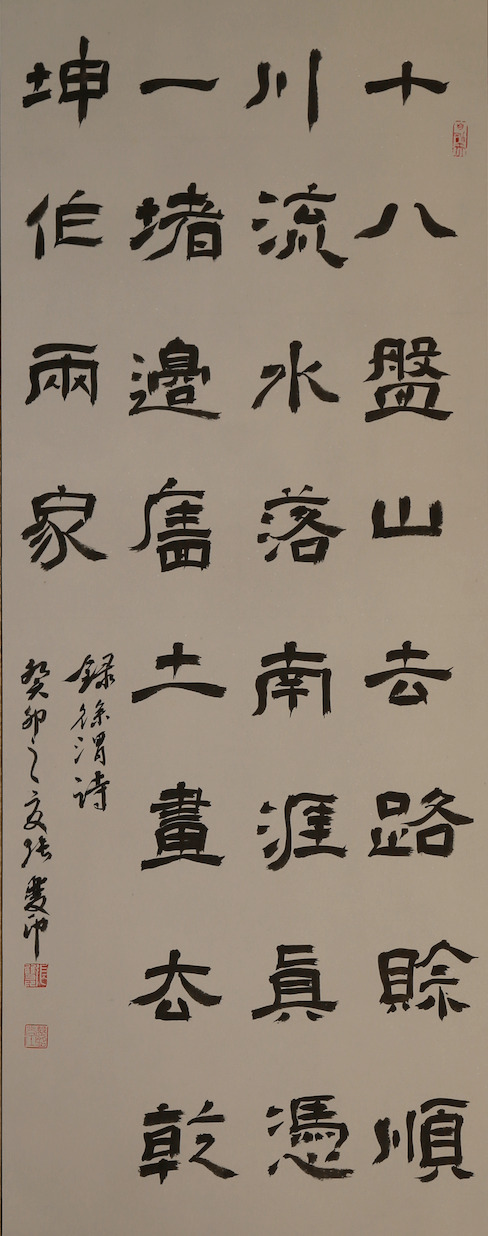 十八盤山去路賒順
川流水落南涯眞憑
一堵邊廧土畫去乾
坤作兩家
録徐渭詩
癸卯之夏張雙印